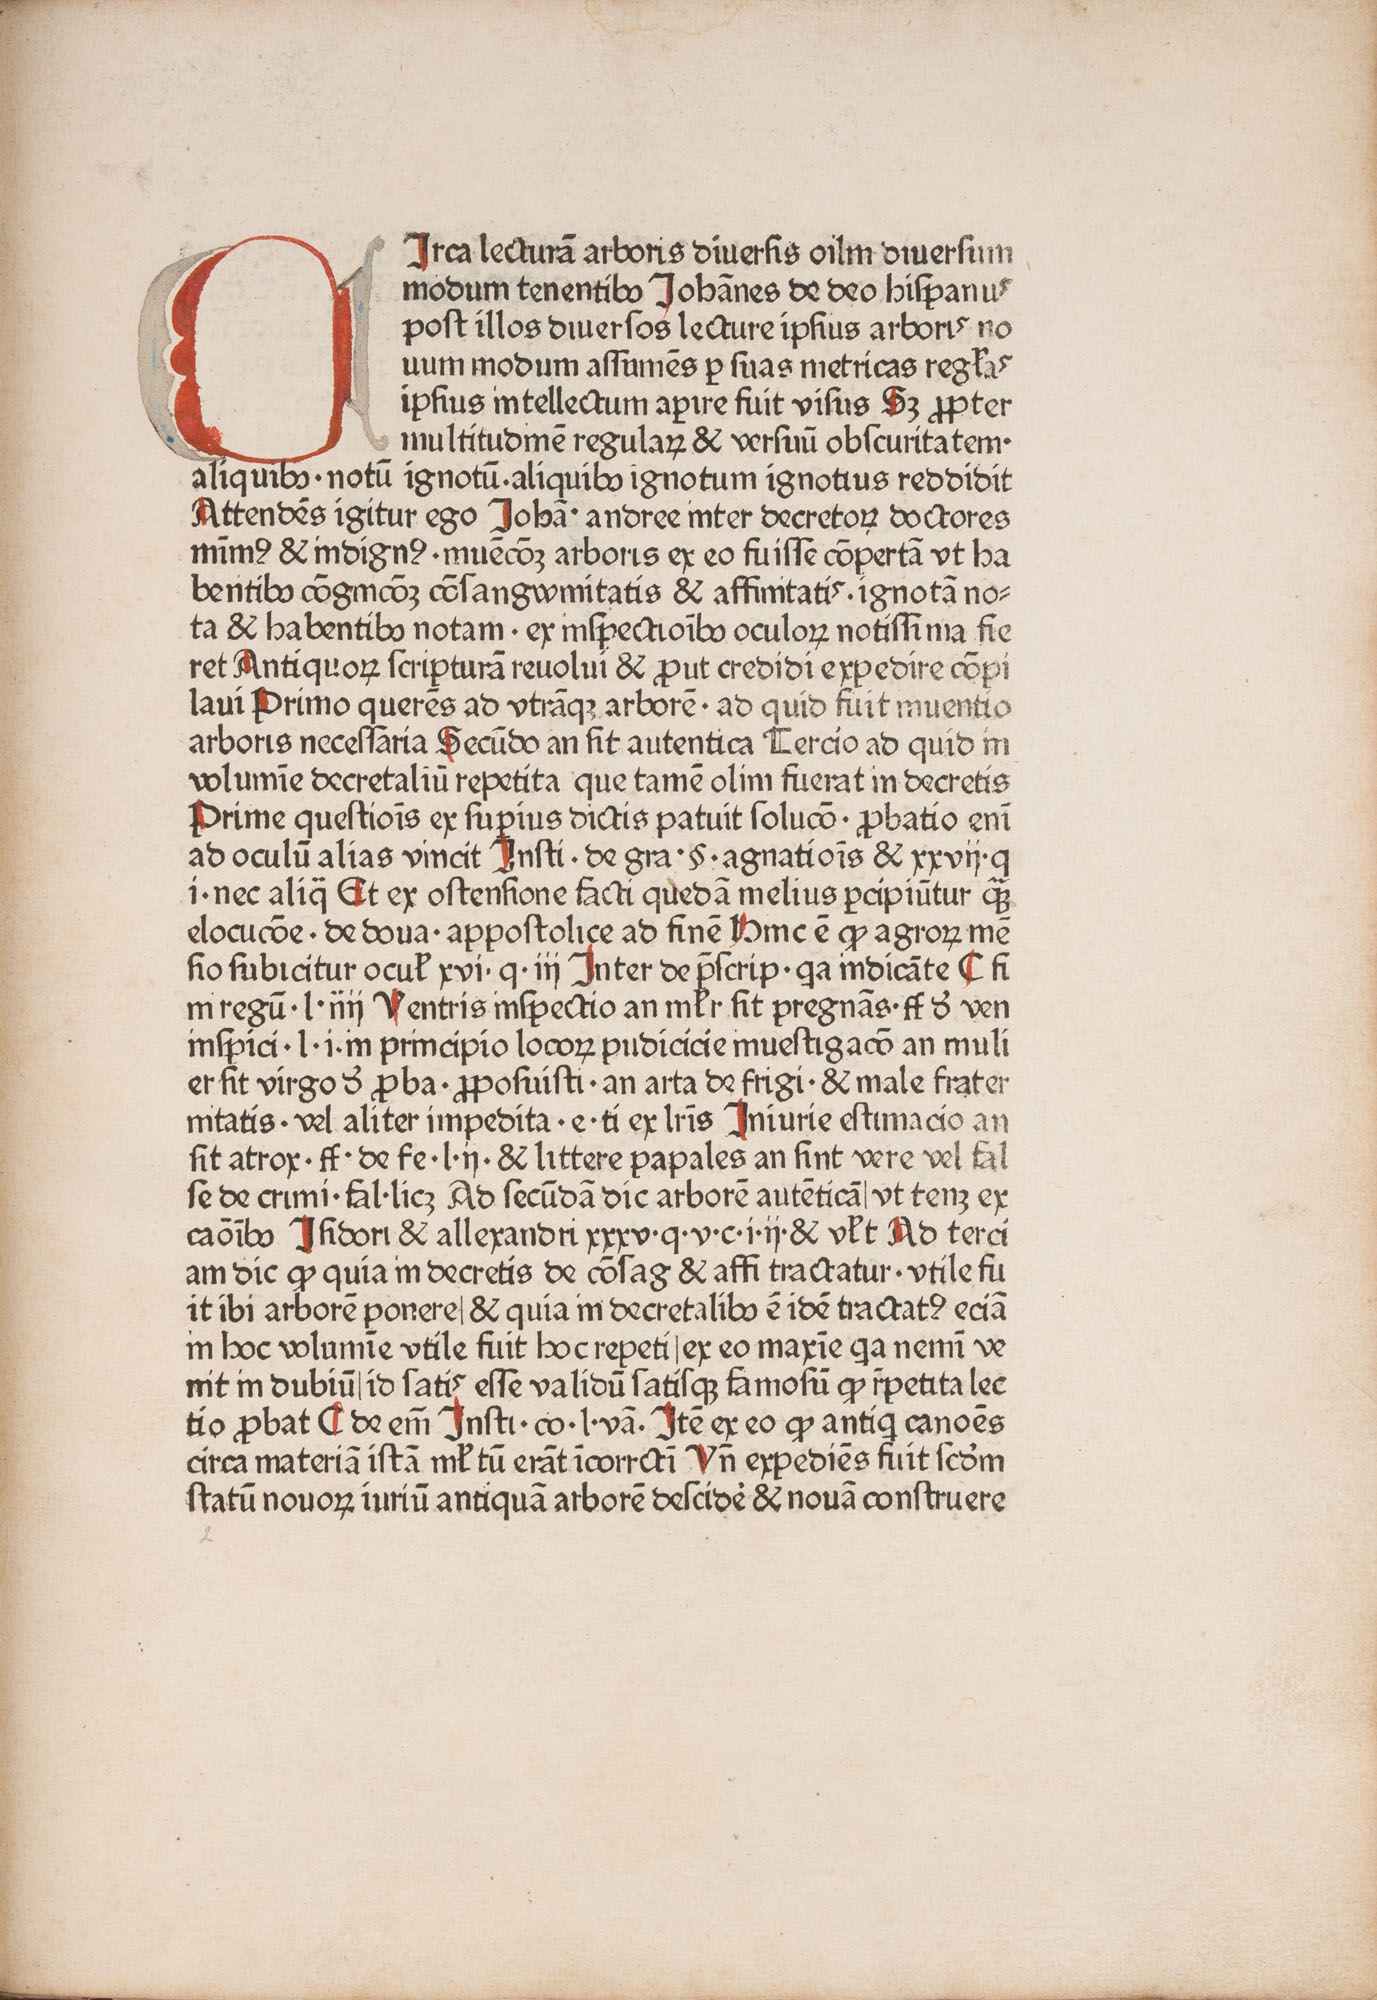 CIrca lecturā arboris diuersis oilm diuersum
modum tenentibꝰ Johānes de deo hispanuˢ
post illos diuersos lecture ipsius arborıˢ no
uum modum assumēs ꝑ suas metricas regl̄aˢ
ipsius intellectum aꝑire fuit visus Sꝫ ꝓpter
multitudinē regulaꝝ & versuū obscuritatem·
aliquibꝰ · notū ignotū · aliquibꝰ ignotum ignotius reddidit
Attendēs igitur ego Johā· andree inter decretoꝝ doctores
mīmꝰ & indignꝰ · inuēcōꝫ arboris ex eo fuisse cōpertā vt ha
bentibꝰ cōgnicōꝫ cōsangwinitatis & affinitatiˢ · ignotā no⸗
ta & habentibꝰ notam · ex inspectioībꝰ oculoꝝ notissima fie
ret Antiquoꝝ scripturā reuolui & ꝓut credidi expedire cōpi
laui Primo querēs ad vtrāqꝫ arborē · ad quid fuit inuentio
arboris necessaria Secūdo an sit autentica Tercio ad quid in
volumīe decretaliū repetita que tamē olim fuerat in decretis
Prime questioīs ex supius dictis patuit solucō · ꝓbatio enī
ad oculū alias vincit Insti · de gra · § · agnatioīs & xxvij · q
i · nec aliq̄ Et ex ostensione facti quedā melius ꝑcipiūtur q̄ꝫ
elocucōe · de doua · appostolice ad finē Hinc ē ꝙ agroꝝ mē
sio subicitur ocul̄ xvi · q · iij Inter de p̄scrip · qa indicāte C fi
in regū · l · iiij Ventris inspectio an ml̄r sit pregnās · ff ð ven
inspici · l · i · in principio locoꝝ pudicicie inuestigacō an muli
er sit virgo ð ꝓba · ꝓposuisti · an arta de frigi · & male frater
nitatis · vel aliter impedita · e · ti ex lrīs Iniurie estimacio an
sit atrox · ff · de fe · l · ij · & littere papales an sint vere vel fal
se de crimi · fal · licꝫ Ad secūdā dic arborē autēticā| vt tenꝫ ex
caōībꝰ Isidori & allexandri xxxv · q · v · c · i · ij · & vl̄t Ad terci
am dic ꝙ quia in decretis de cōsag & affi tractatur · vtile fu
it ibi arborē ponere| & quia in decretalibꝰ ē idē tractatꝰ eciā
in hoc volumīe vtile fuit hoc repeti| ex eo maxīe qa nemī ve
nit in dubiū| id satiˢ esse validū satisqꝫ famosū ꝙ r̄petita lec
tio ꝓbat C de em̄ Insti · co · l · vā. Itē ex eo ꝙ antiq canoēs
circa materiā istā ml̄tū erāt īcorrcti Vn̄ expediēs fuit scðm
statū nouoꝝ iuriū antiquā arborē descidē & nouā construere
2